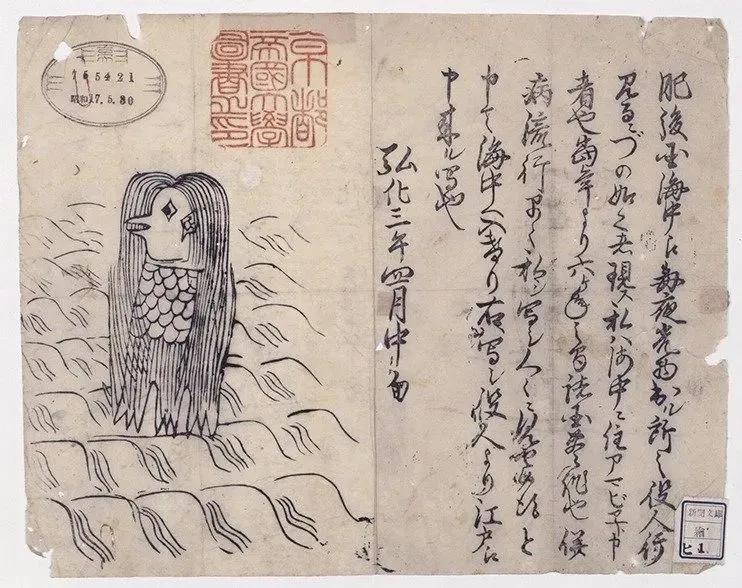 肥後国海中え毎夜光物出ル所之役人行
見るニづの如く之者現ス私ハ海中ニ住アマビヱト申
者也當年より六ヶ年之間諸国豊作也併
病流行早々私シ写シ人々ニ見せ候得と
申て海中へ入けり右写シ役人より江戸え
申来ル写也
弘化三年四月中旬
京都
帝國大學
圖書之印
165421
昭和17.5.30
新聞文庫
繪
ヒ1